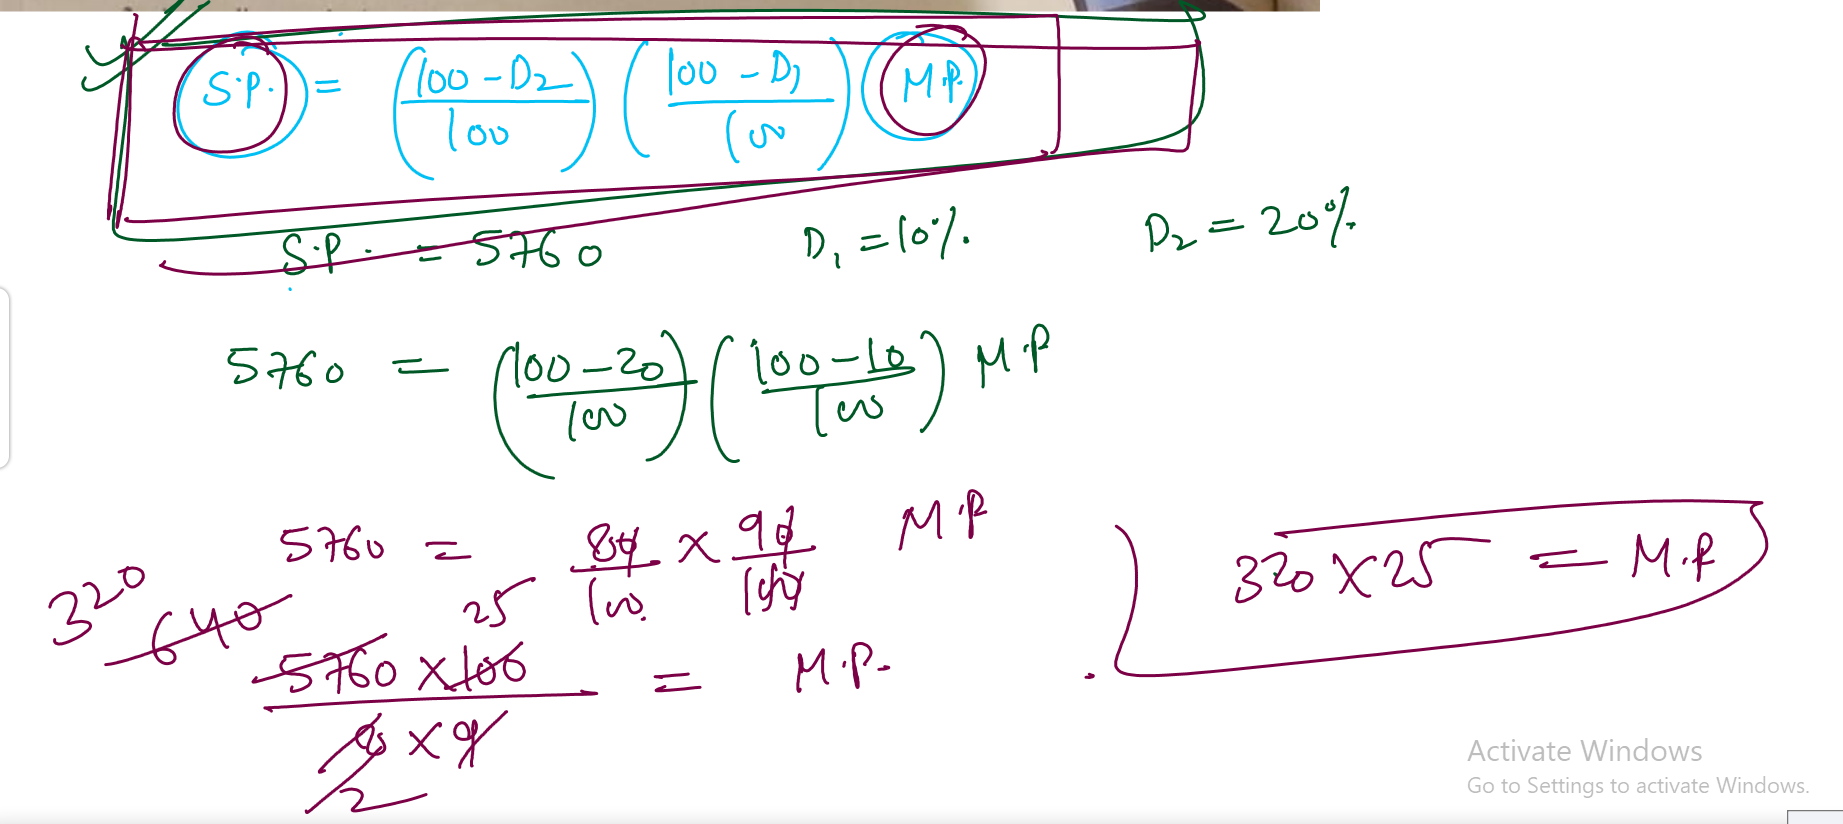 S.P. = (100 - D2 / 100) (100 - D1 / 100) M.P.
S.P. = 5760 D1 = 10% D2 = 20%
5760 = (100 - 20 / 100) (100 - 10 / 100) M.P
5760 = 80/100 × 90/100 M.P
320 640 25
5760 × 100 / 8 × 9 = M.P.
2
320 × 25 = M.P
Activate Windows
Go to Settings to activate Windows.